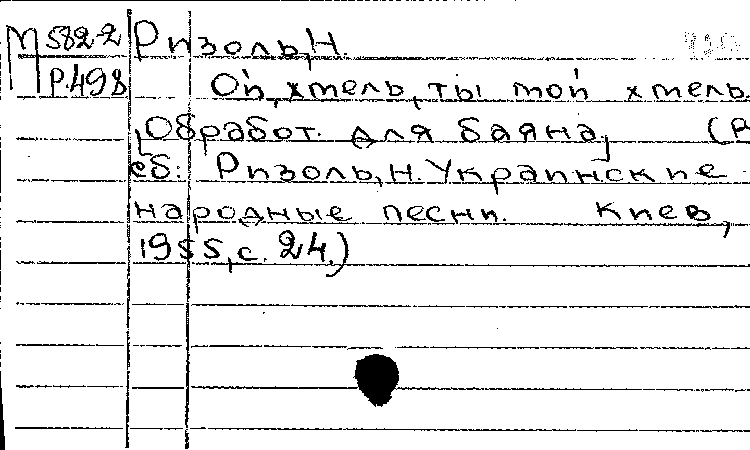 М 582-2 Ризоль, Н.
Р.498 Ой, хмель, ты мой хмель.
[Обработ. для баяна] (В
сб: Ризоль, Н. Украинские
народные песни. Киев,
1955, с. 24.)